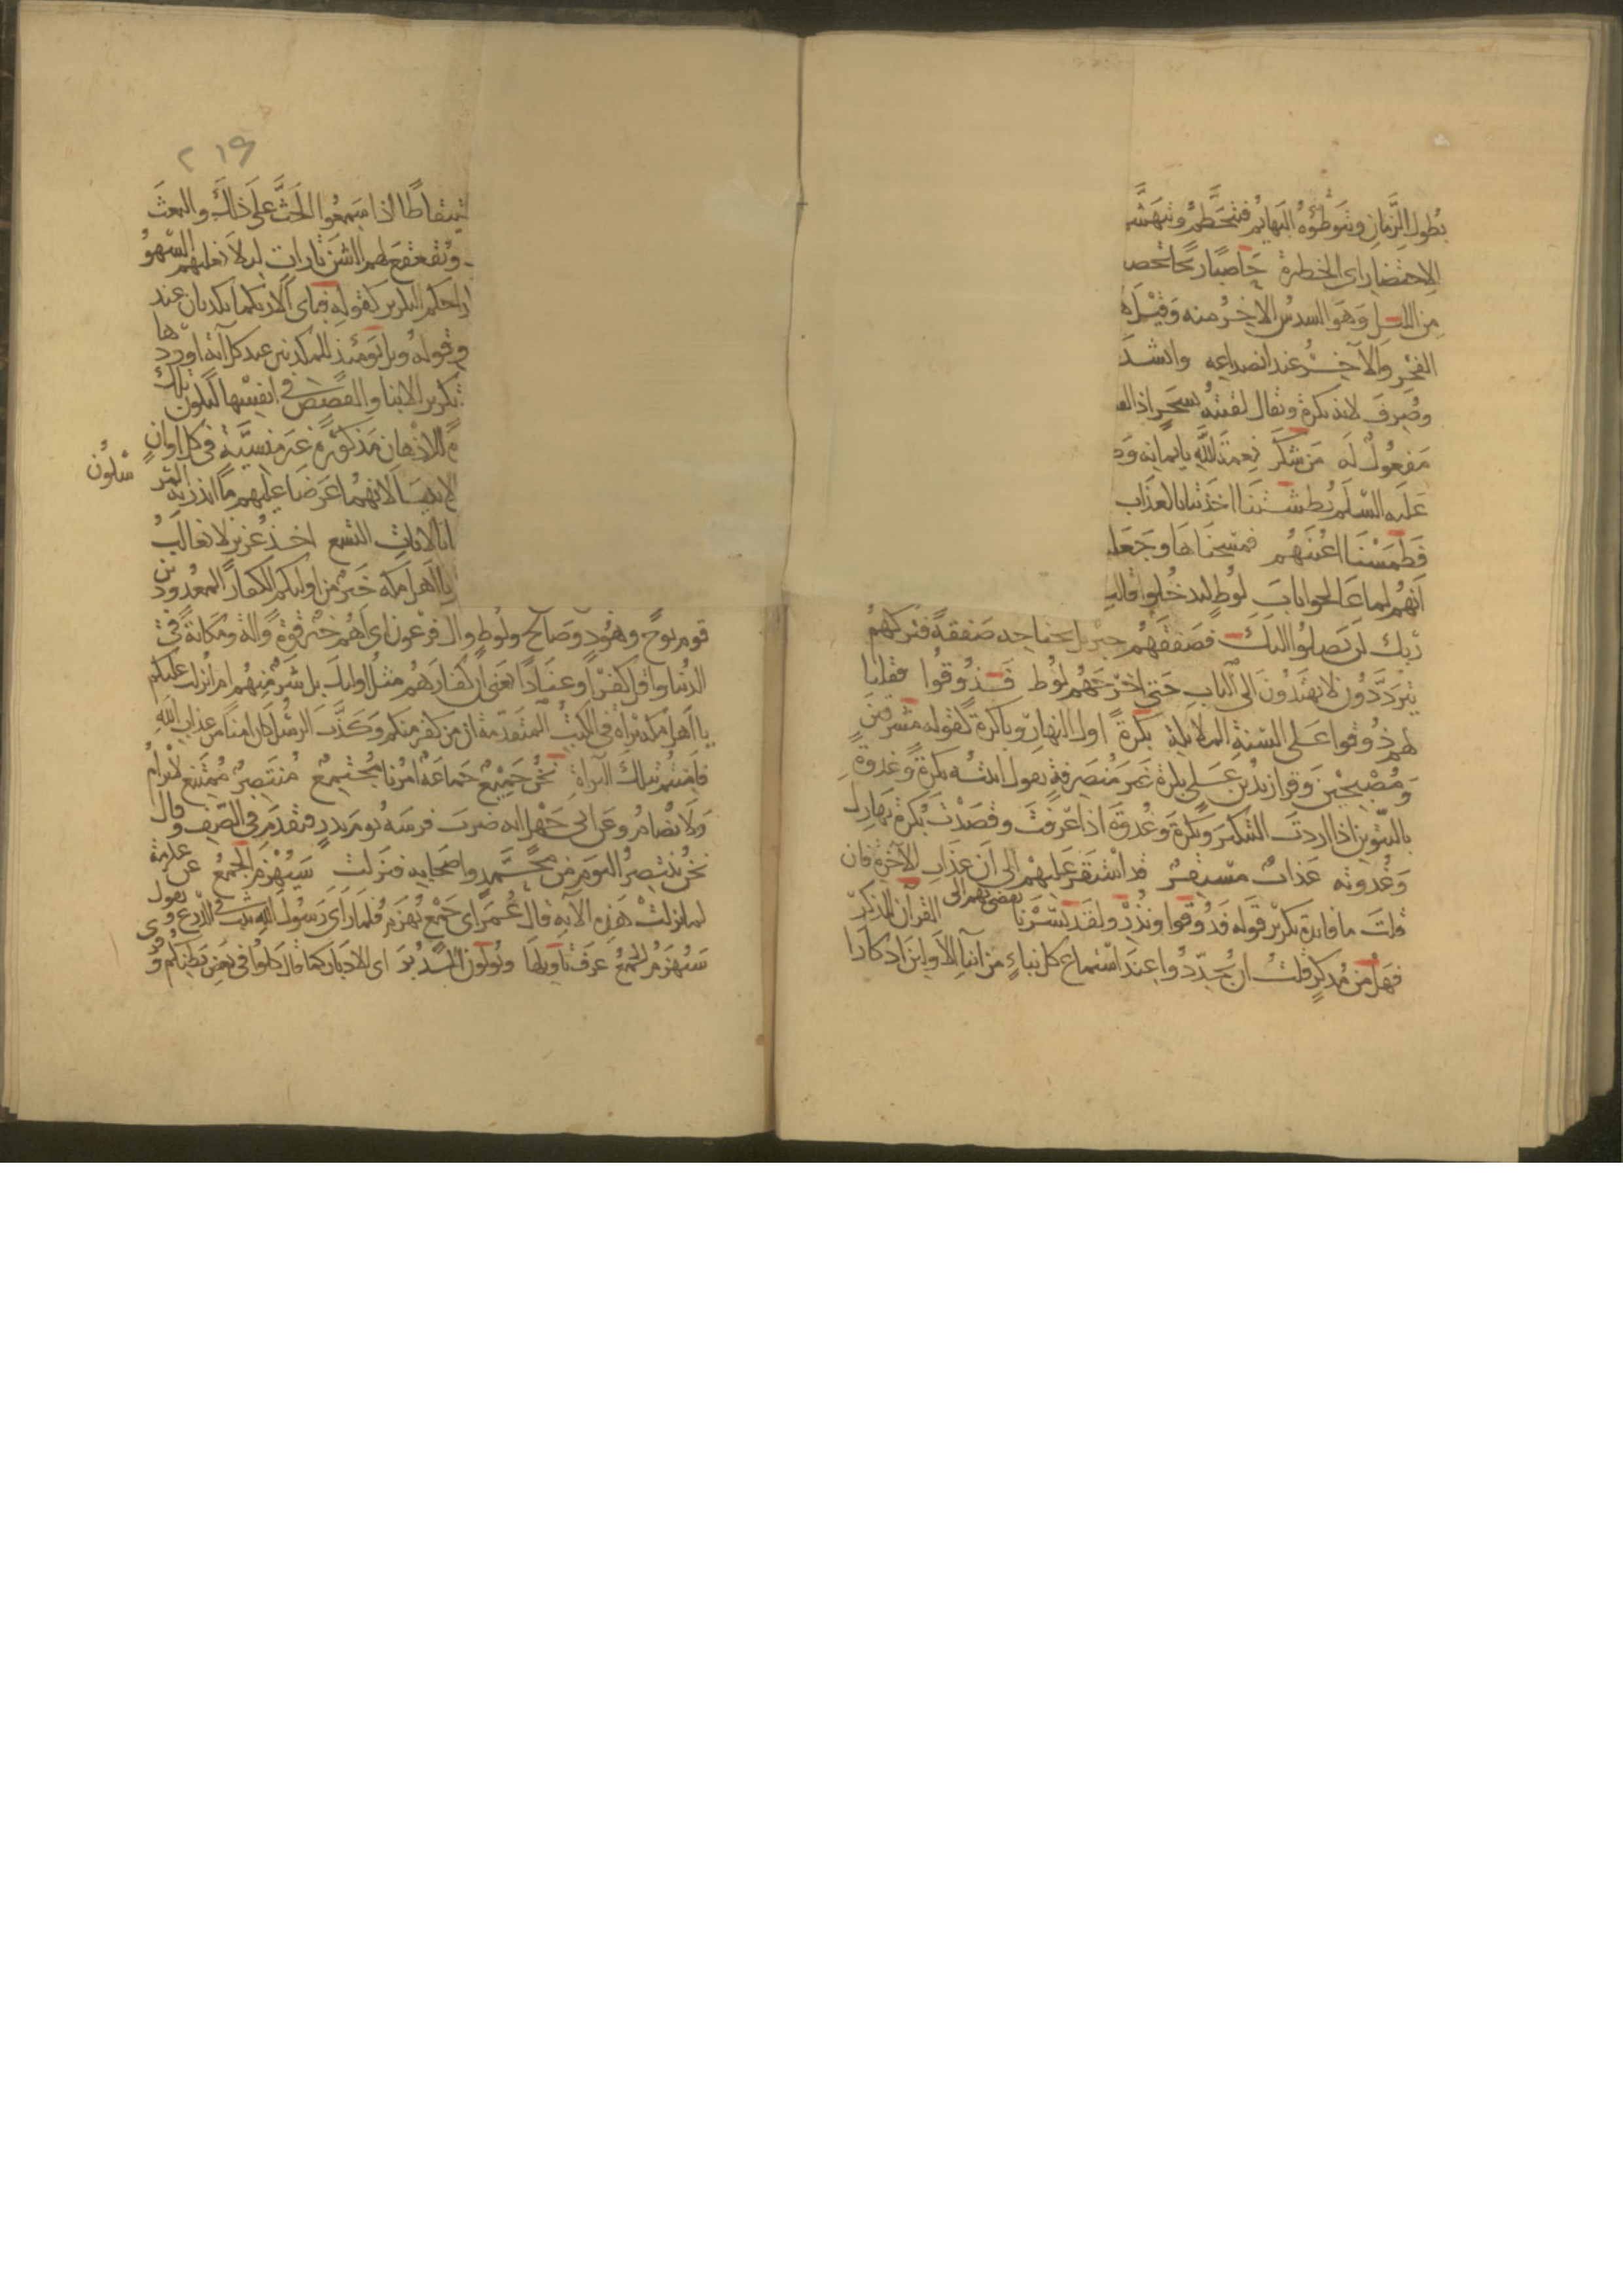 بطول الزمان وتتوطؤه البهائم فتحطم وتهشم
الاحتضار اى الحظيرة حاصبا ريحا تحصب
من الليل وهو السدس الاخر منه وقيل ها
الفجر والآخر عند انصداعه وانشد
وصرف لانه نكرة ويقال لقيته سحر اذا
مفعول له من شكر نعمة الله بايمانه
عليه السلم بطشتنا اخذتنا بالعذاب
فطمسنا اعينهم فمسحناها وجعلـ
انهم لما عالجوا باب لوط ليدخلوا قالت
ربك لن يصلوا اليك فصفقهم جبريل بجناحه صفقة فتركهم
يترددون لا يهتدون الى الباب حتى اخرجهم لوط فذوقوا فقلنا
لهم ذوقوا على السنة الملائكة بكرة اول النهار وباكرة كقوله مشرقين
ومصبحين وقرا زيد بن على بكرة غير منصرفة يقول اتيته بكرة وغدوة
بالتنوين اذا اردت التنكير وبكرة وغدوة اذا عرفت وقصدت بكرة نهارك
وغدوته عذاب مستقر قد استقر عليهم الى ان يفضى بهم الى عذاب الآخرة فان
قلت ما فائدة تكرير قوله فذوقوا عذابى ونذر ولقد يسرنا القرآن للذكر
فهل من مدكر قلت ان يجددوا عند استماع كل نباء من انباء الاولين ادكارا
٢١٩
ـتيقاظا اذا سمعوا الحث على ذلك والبعث
ويقعقع لهم الشن تارات لئلا يغلبهم السهو
وهكذا حكم التكرير كقوله فباى آلاء ربكما تكذبان عند
وقوله ويل يومئذ للمكذبين عند كل آية اوردها
تكرير الانبا والقصص فى انفسها لتكون تلك
للاذهان مذكورة غير منسية فى كل اوان
لانهما عرضا عليهم ما انذر به المرسلون
باياتنا الايات التسع اخذ عزيز لا يغالب
يا اهل مكة خير من اولئكم الكفار المعدودين
قوم نوح وهود وصالح ولوط وال فرعون اى اهم خير قوة وآلة ومكانة فى
الدنيا واقل كفرا وعنادا يعنى ان كفاركم مثل اولئك بل شر منهم ام انزلت عليكم
يا اهل مكة براة فى الكتب المتقدمة ان من كفر منكم وكذب الرسل كان امنا من عذاب الله
فامنتم بتلك البراة نحن جميع جماعة امرنا مجتمع منتصر ممتنع لا نرام
ولا نضام وعن ابى جهل انه ضرب فرسه يوم بدر فتقدم فى الصف وقال
نحن ننتصر اليوم من محمد واصحابه فنزلت سيهزم الجمع عن عكرمة
لما نزلت هذه الآية قال عمر اى جمع يهزم فلما راى رسول الله يثب فى الدرع ويقول
سيهزم الجمع عرف تاويلها ويولون الدبر اى الادبار كما قال كلوا فى بعض بطنكم